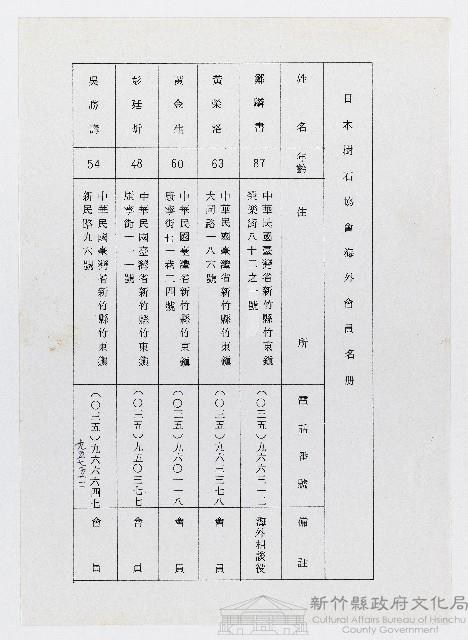 日本樹石協會海外會員名冊
姓名 年齡 住所 電話番號 備註
鄭 書 87 中華民國臺灣省新竹縣竹東鎮
榮街八十二之一號 (〇三五)九六六三一二 海外相談役
黃榮洛 63 中華民國臺灣省新竹縣竹東鎮
大同路一八六號 (〇三五)九六二三七八 會員
黃金生 60 中華民國臺灣省新竹縣竹東鎮
康寧街七一巷二四號 (〇三五)九六〇一一八 會員
彭廷 48 中華民國臺灣省新竹縣竹東鎮
康寧街一二一號 (〇三五)九五〇三七七 會員
吳勝壽 54 中華民國臺灣省新竹縣竹東鎮
新民路九六號 (〇三五)九六六六四七 會員
新竹縣政府文化局
Cultural Affairs Bureau of Hsinchu
County Government